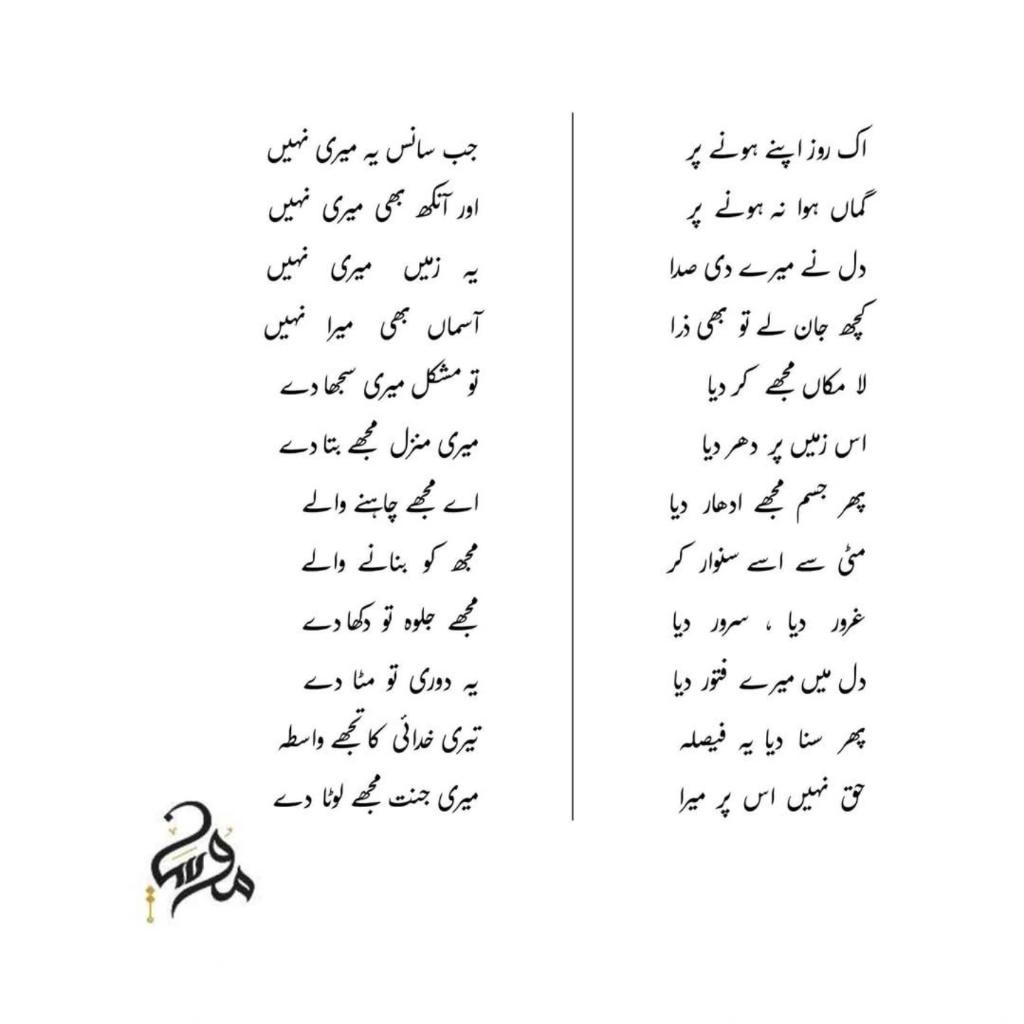 اک روز اپنے ہونے پر
گماں ہوا نہ ہونے پر
دل نے میرے دی صدا
کچھ جان لے تو بھی ذرا
لا مکاں مجھے کر دیا
اس زمیں پر دھر دیا
پھر جسم مجھے ادھار دیا
مٹی سے اسے سنوار کر
غرور دیا ، سرور دیا
دل میں میرے فتور دیا
پھر سنا دیا یہ فیصلہ
حق نہیں اس پر میرا
جب سانس یہ میری نہیں
اور آنکھ بھی میری نہیں
یہ زمیں میری نہیں
آسماں بھی میرا نہیں
تو مشکل میری سجھا دے
میری منزل مجھے بتا دے
اے مجھے چاہنے والے
مجھ کو بنانے والے
مجھے جلوہ تو دکھا دے
یہ دوری تو مٹا دے
تیری خدائی کا تجھے واسطہ
میری جنت مجھے لوٹا دے